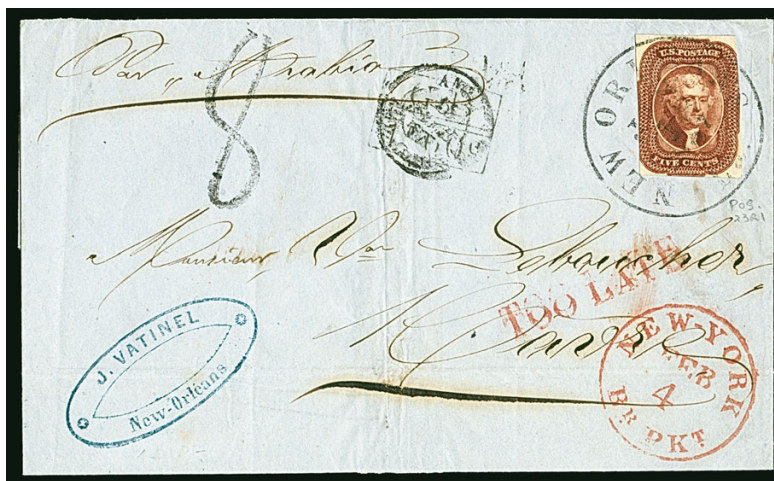 Par "Arabia"
8
U.S. POSTAGE
FIVE CENTS
NEW OR
Pos.
23R1
Monsieur Vor Leboucher,
TOO LATE
Havre
J. VATINEL
New-Orléans
NEW-YORK
FEB
4
BR. PKT